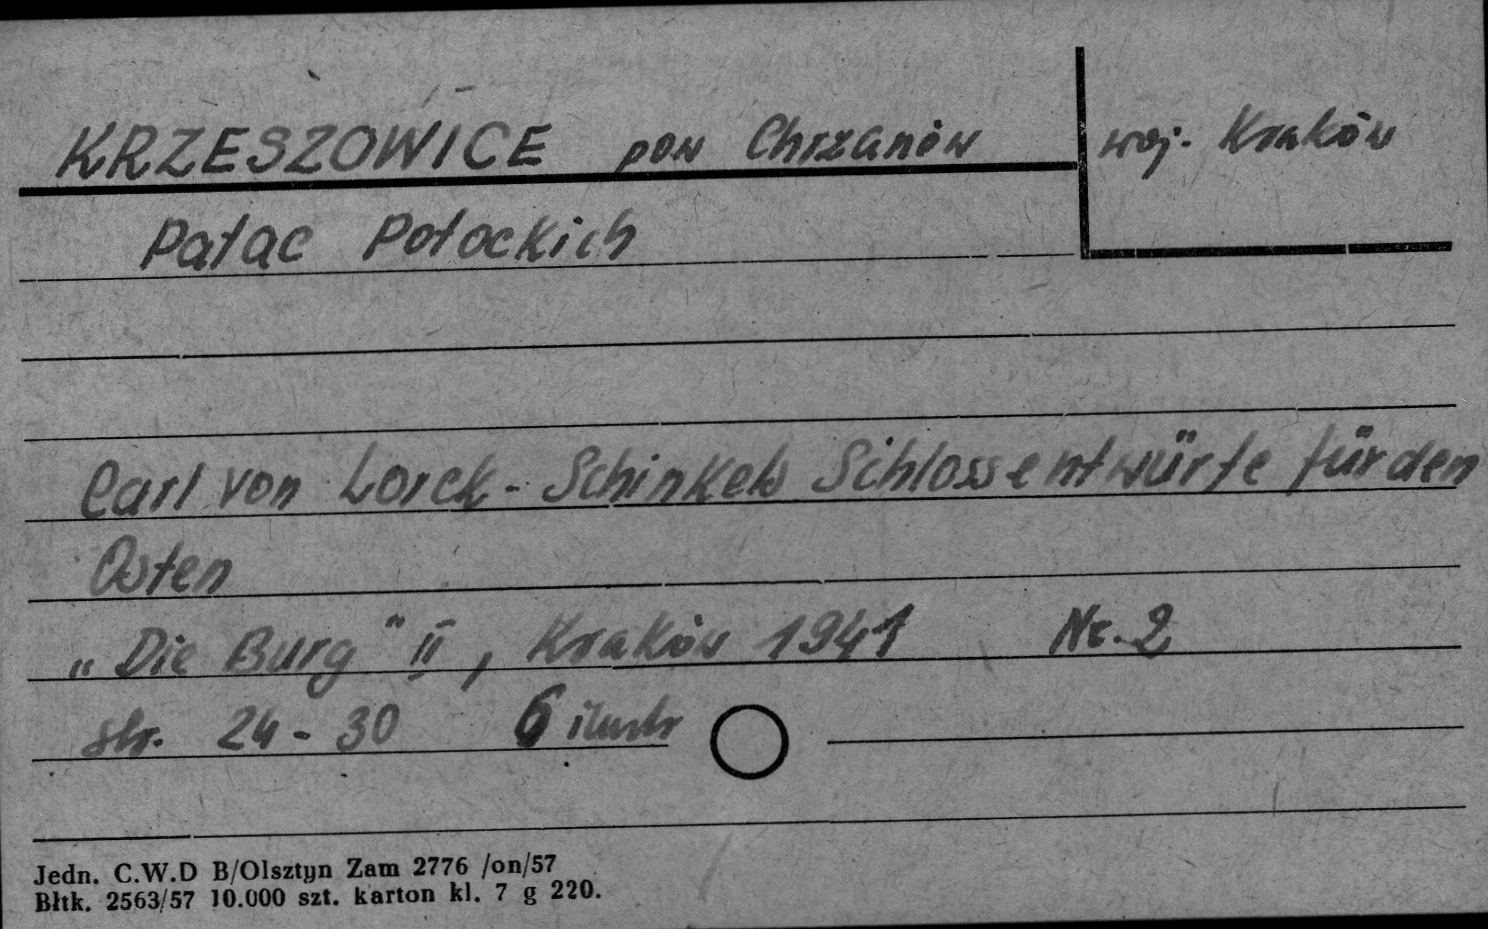 KRZESZOWICE pow Chrzanów woj. Kraków
Pałac Potockich
Carl von Lorck - Schinkels Schlossentwürfe für den
Osten
„Die Burg" II, Kraków 1941 Nr. 2
str. 24 - 30 6 ilustr
Jedn. C.W.D B/Olsztyn Zam 2776 /on/57
Błtk. 2563/57 10.000 szt. karton kl. 7 g 220.